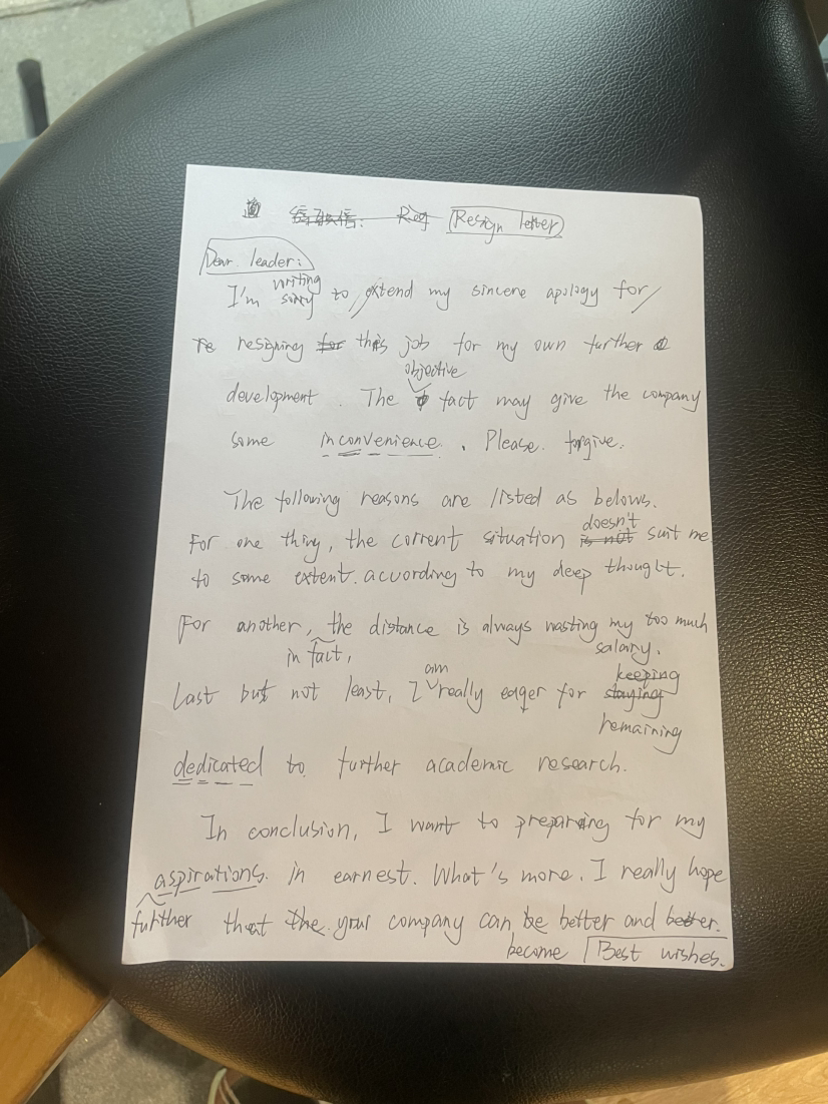 Resign letter
Dear leader:
I'm writing to extend my sincere apology for
resigning this job for my own further
objective
development. The fact may give the company
some inconvenience. Please forgive.
The following reasons are listed as belows.
doesn't
For one thing, the current situation is not suit me
to some extent. according to my deep thought.
For another, the distance is always wasting my too much
in fact, salary.
am keeping
Last but not least, I really eager for staying
remaining
dedicated to further academic research.
In conclusion, I want to preparing for my
aspirations. in earnest. What's more, I really hope
further that the your company can be better and better.
become Best wishes.